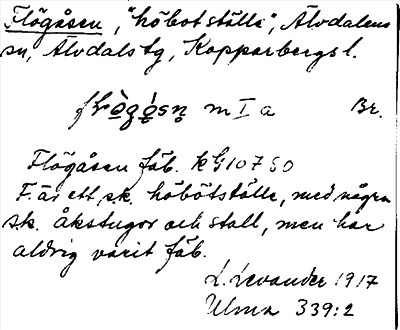 Flögåsen, "höbotställe", Älvdalens
sn, Älvdals tg, Kopparbergs l.
m I a Br.
Flögåsen fäb. KG 107 SO
F. är ett s.k. höbotställe, med några
s.k. åkstugor och stall, men har
aldrig varit fäb.
L. Levander 1917
Ulma 339:2